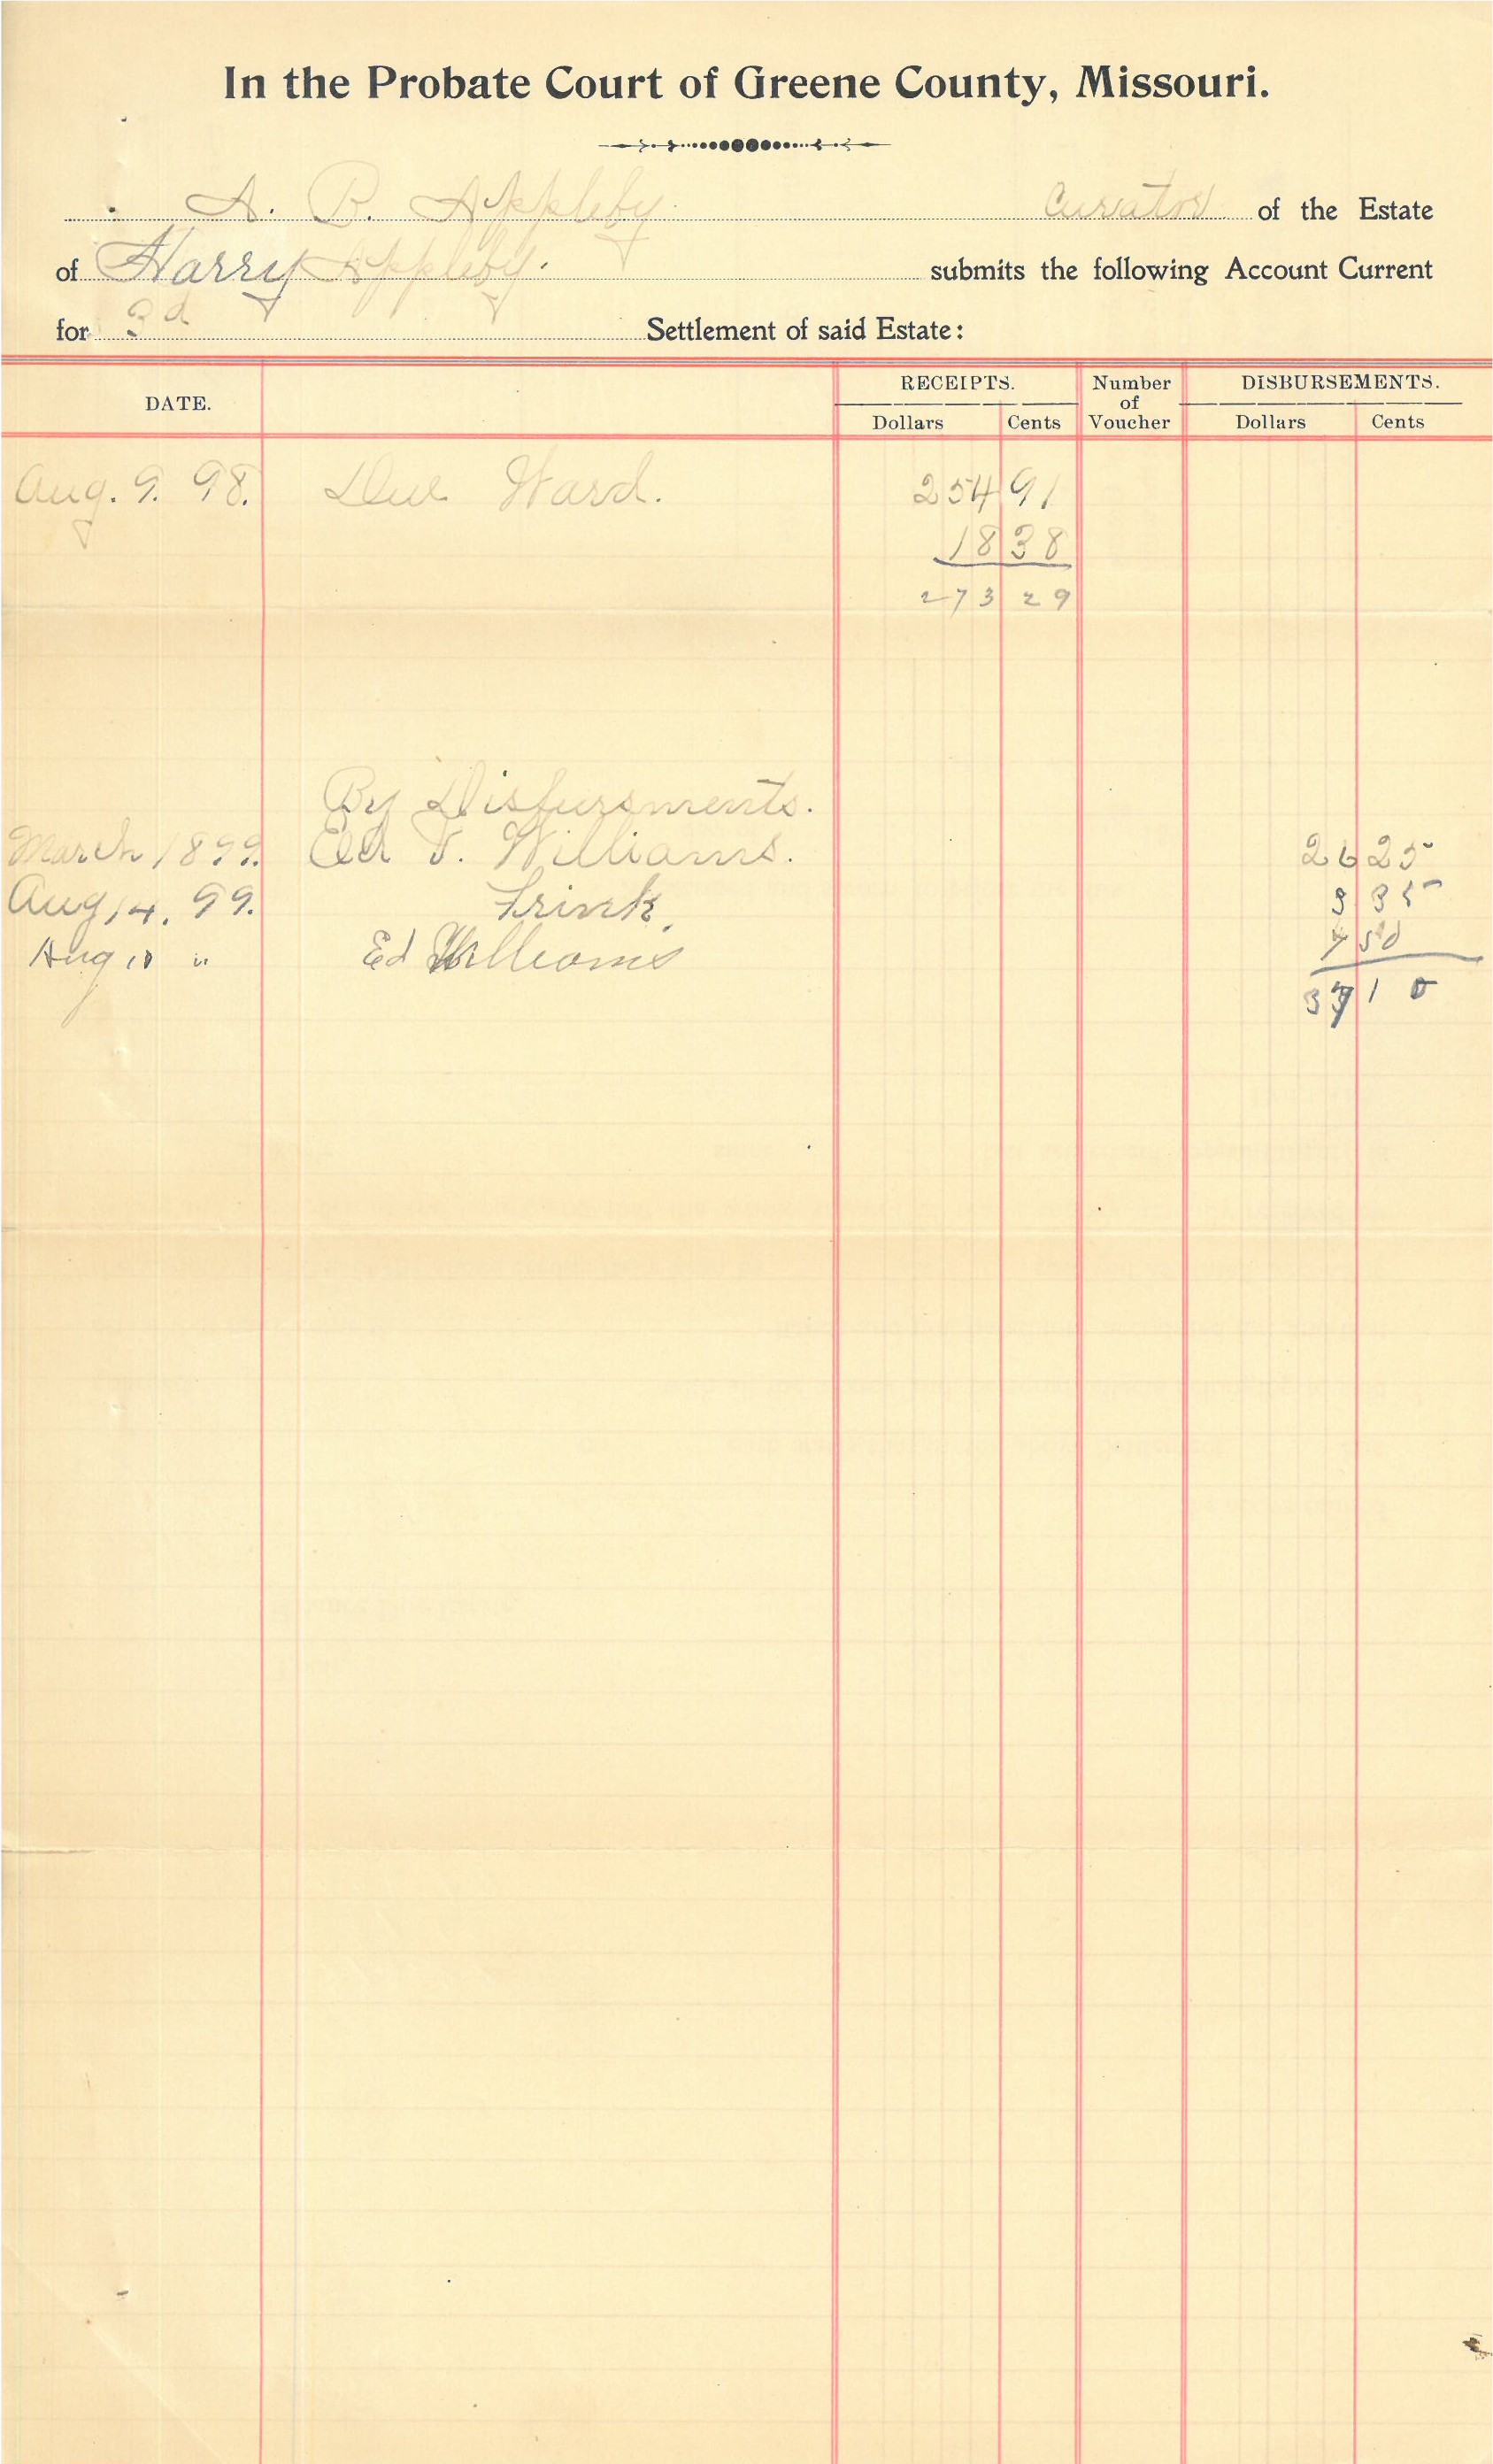 In the Probate Court of Greene County, Missouri.
A. B. Appleby Curator of the Estate
of Harry Appleby. submits the following Account Current
for 3d Settlement of said Estate:
DATE. RECEIPTS. Number of Voucher DISBURSEMENTS.
Dollars Cents Dollars Cents
Aug. 9. 98. Due Ward. 254 91
18 38
273 29
By Disbursments.
March 1899. Ed T. Williams. 26 25
Aug 14. 99. Frink. 3 35
Aug 18 " Ed Williams 7 50
37 10